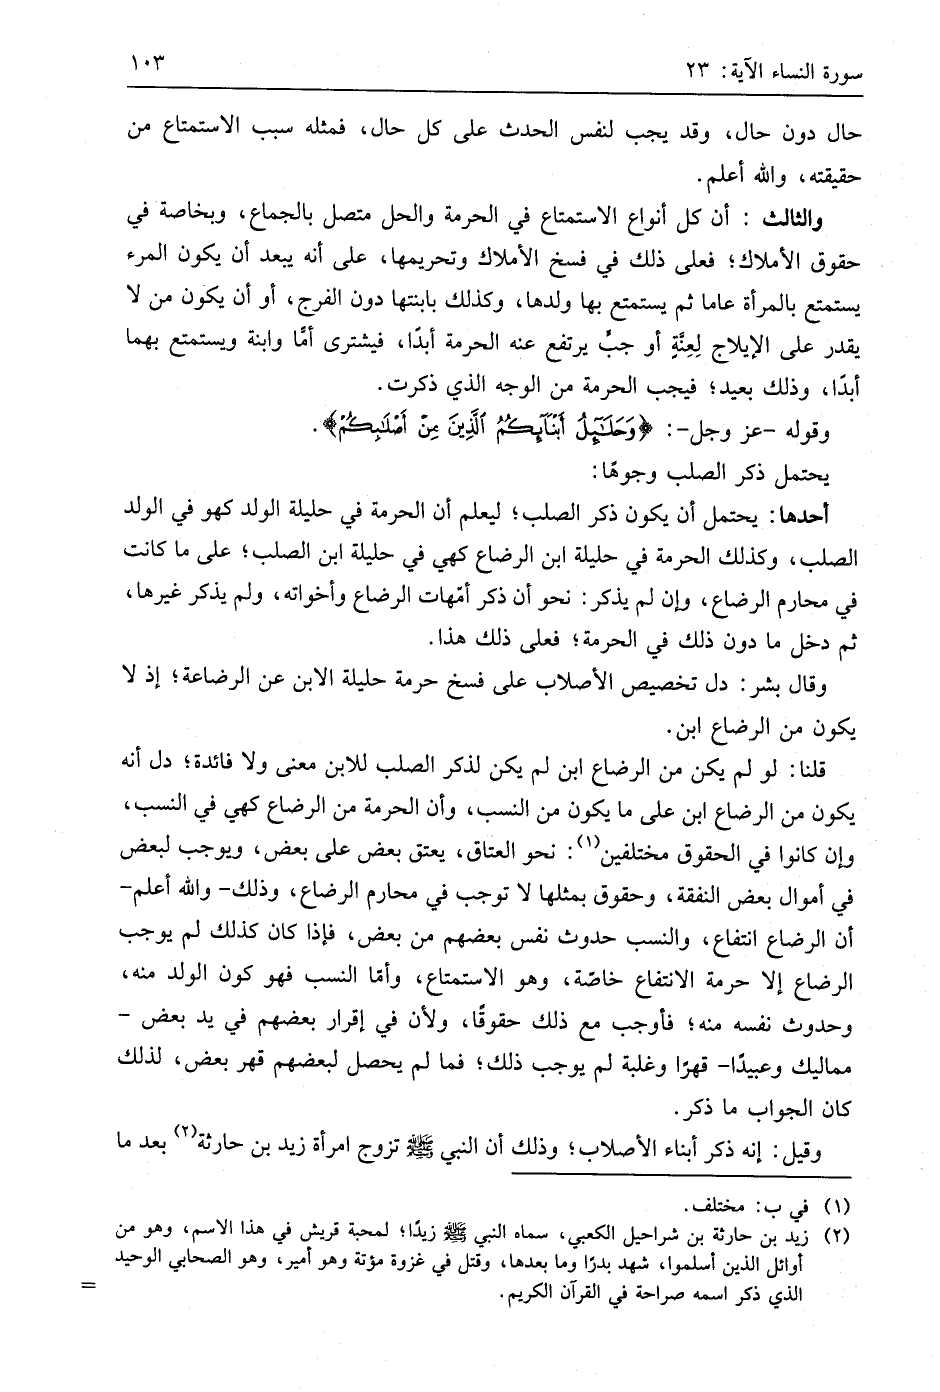 سورة النساء الآية: ٢٣
١٠٣
حال دون حال، وقد يجب لنفس الحدث على كل حال، فمثله سبب الاستمتاع من
حقيقته، والله أعلم.
والثالث : أن كل أنواع الاستمتاع في الحرمة والحل متصل بالجماع، وبخاصة في
حقوق الأملاك؛ فعلى ذلك في فسخ الأملاك وتحريمها، على أنه يبعد أن يكون المرء
يستمتع بالمرأة عاما ثم يستمتع بها ولدها، وكذلك بابنتها دون الفرج، أو أن يكون من لا
يقدر على الإيلاج لِعِنَّةٍ أو جبٍّ يرتفع عنه الحرمة أبدًا، فيشترى أمًّا وابنة ويستمتع بهما
أبدًا، وذلك بعيد؛ فيجب الحرمة من الوجه الذي ذكرت.
وقوله -عز وجل-: ﴿وَحَلَٰٓئِلُ أَبْنَآئِكُمُ ٱلَّذِينَ مِنْ أَصْلَٰبِكُمْ﴾.
يحتمل ذكر الصلب وجوهًا:
أحدها: يحتمل أن يكون ذكر الصلب؛ ليعلم أن الحرمة في حليلة الولد كهو في الولد
الصلب، وكذلك الحرمة في حليلة ابن الرضاع كهي في حليلة ابن الصلب؛ على ما كانت
في محارم الرضاع، وإن لم يذكر: نحو أن ذكر أمّهات الرضاع وأخواته، ولم يذكر غيرها،
ثم دخل ما دون ذلك في الحرمة؛ فعلى ذلك هذا.
وقال بشر: دل تخصيص الأصلاب على فسخ حرمة حليلة الابن عن الرضاعة؛ إذ لا
يكون من الرضاع ابن.
قلنا: لو لم يكن من الرضاع ابن لم يكن لذكر الصلب للابن معنى ولا فائدة؛ دل أنه
يكون من الرضاع ابن على ما يكون من النسب، وأن الحرمة من الرضاع كهي في النسب،
وإن كانوا في الحقوق مختلفين(١): نحو العتاق، يعتق بعض على بعض، ويوجب لبعض
في أموال بعض النفقة، وحقوق بمثلها لا توجب في محارم الرضاع، وذلك- والله أعلم-
أن الرضاع انتفاع، والنسب حدوث نفس بعضهم من بعض، فإذا كان كذلك لم يوجب
الرضاع إلا حرمة الانتفاع خاصّة، وهو الاستمتاع، وأمّا النسب فهو كون الولد منه،
وحدوث نفسه منه؛ فأوجب مع ذلك حقوقًا، ولأن في إقرار بعضهم في يد بعض -
مماليك وعبيدًا- قهرًا وغلبة لم يوجب ذلك؛ فما لم يحصل لبعضهم قهر بعض، لذلك
كان الجواب ما ذكر.
وقيل: إنه ذكر أبناء الأصلاب؛ وذلك أن النبي ﷺ تزوج امرأة زيد بن حارثة(٢) بعد ما
(١) في ب: مختلف.
(٢) زيد بن حارثة بن شراحيل الكعبي، سماه النبي ﷺ زيدًا؛ لمحبة قريش في هذا الاسم، وهو من
أوائل الذين أسلموا، شهد بدرًا وما بعدها، وقتل في غزوة مؤتة وهو أمير، وهو الصحابي الوحيد
الذي ذكر اسمه صراحة في القرآن الكريم.
=